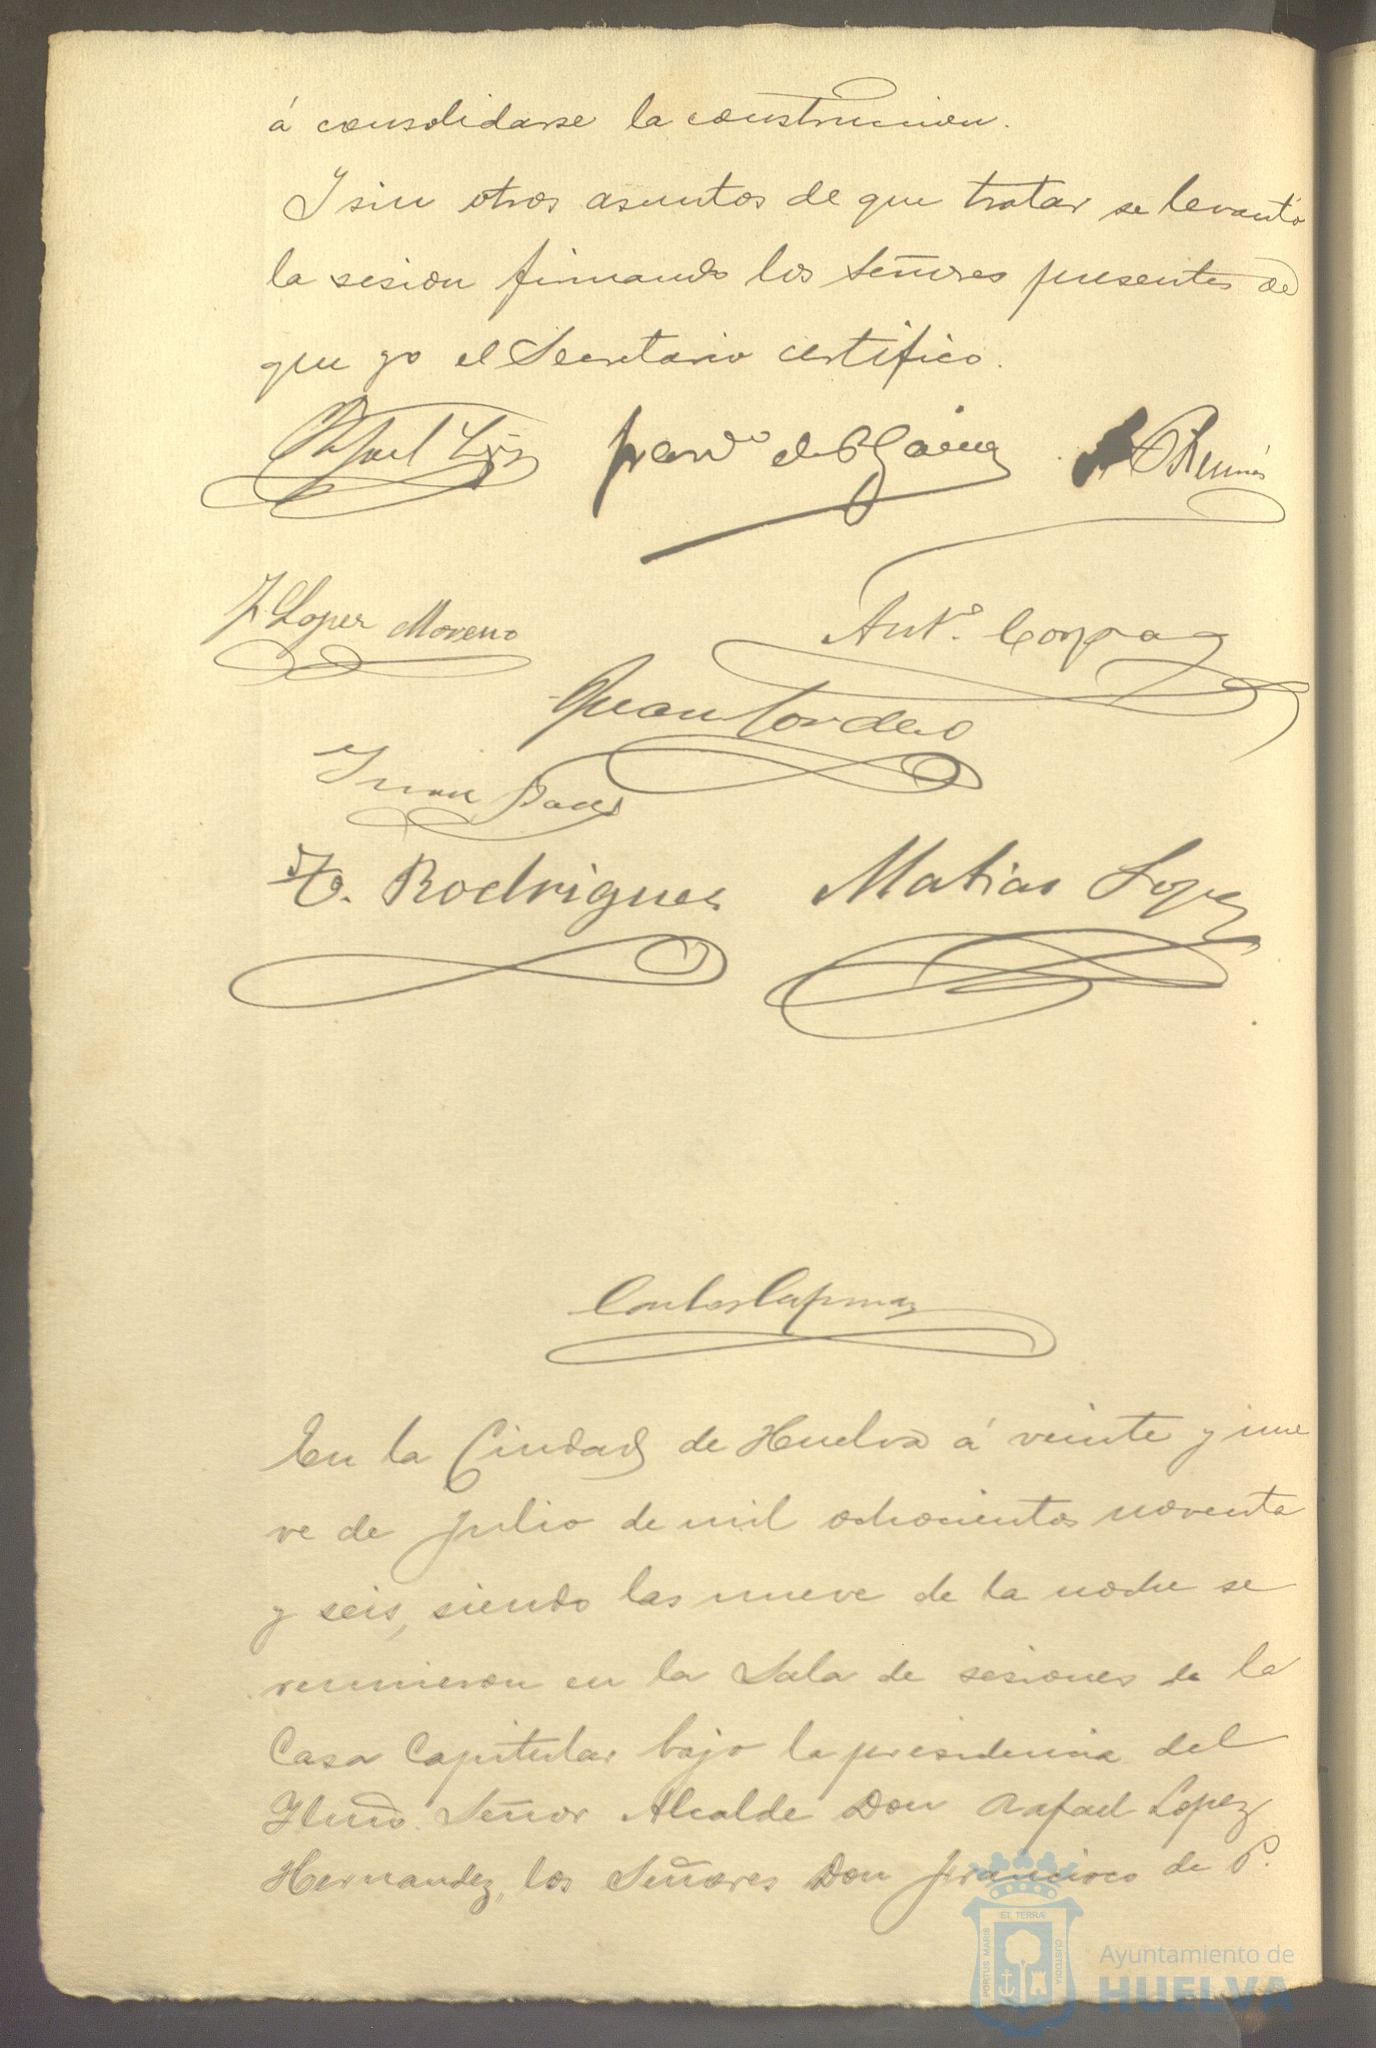 á consolidarse la construccion.
Y sin otros asuntos de que tratar se levantó
la sesion firmando los Señores presentes de
que yo el Secretario certifico.
Rafael Lopez
Franco de P
J. Lopez Moreno
Anto.
Juan Cordero
Juan
Rodriguez Matias Lopez
Carlos
En la Ciudad de Huelva á veinte y nue
ve de Julio de mil ochocientos noventa
y seis, siendo las nueve de la noche se
reunieron en la Sala de sesiones de la
Casa Capitular bajo la presidencia del
Ilmo. Señor Alcalde Don Rafael Lopez
Hernandez, los Señores Don Francisco de P.
PORTUS MARIS ET TERRÆ CUSTODIA
Ayuntamiento de
HUELVA